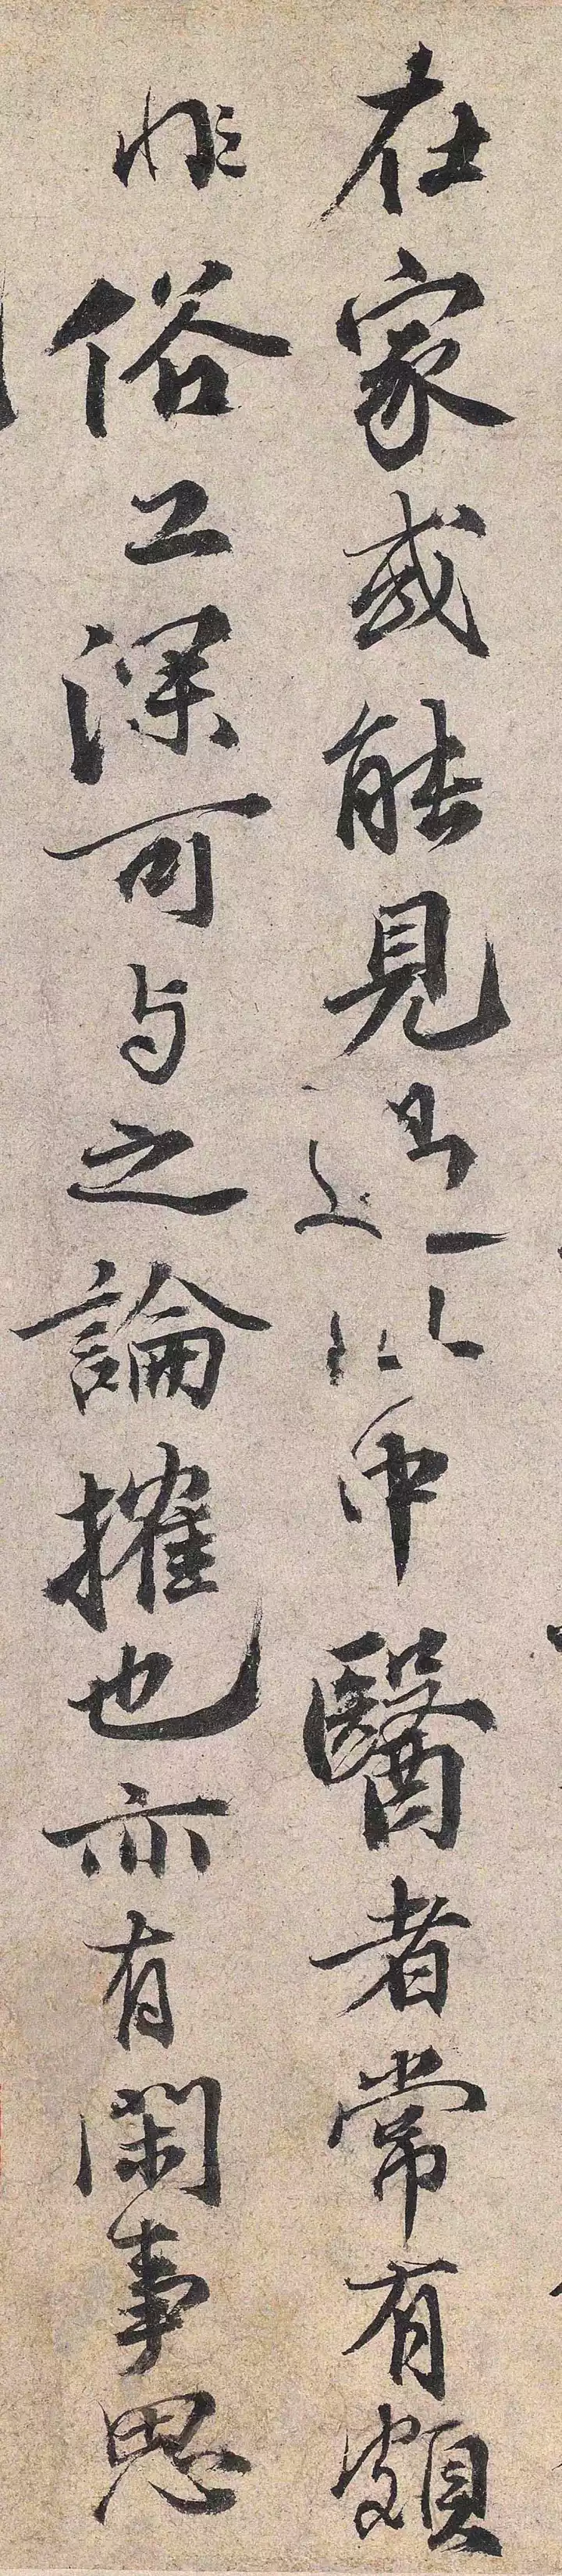 在家或能見過以中醫者常有頗
非俗工深可与之論搉也亦有閑事思